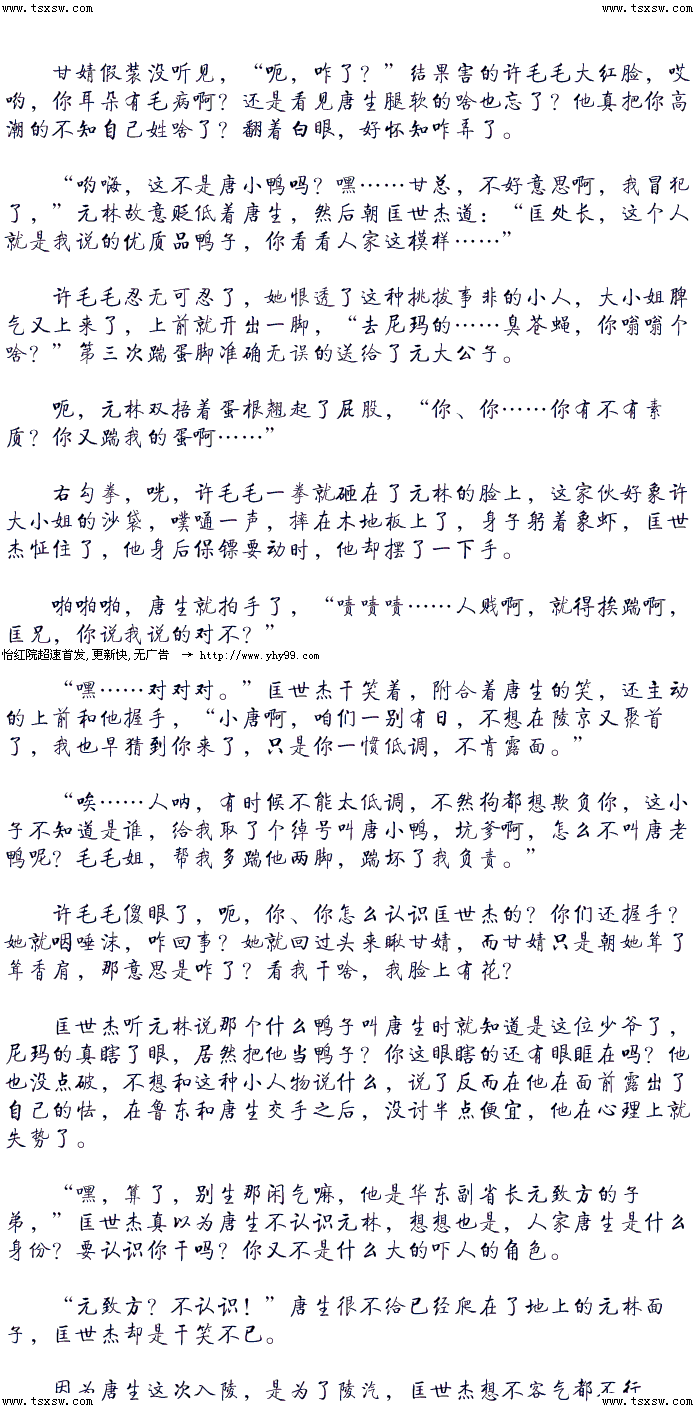 www.tsxsw.com www.tsxsw.com
甘婧假装没听见，“呃，咋了？”结果害的许毛毛大红脸，哎
哟，你耳朵有毛病啊？还是看见唐生腿软的啥也忘了？他真把你高
潮的不知自己姓啥了？翻着白眼，好怀知咋弄了。
“哟嗨，这不是唐小鸭吗？嘿……甘总，不好意思啊，我冒犯
了，”元林故意贬低着唐生，然后朝匡世杰道：“匡处长，这个人
就是我说的优质品鸭子，你看看人家这模样……”
许毛毛忍无可忍了，她恨透了这种挑拔事非的小人，大小姐脾
气又上来了，上前就开出一脚，“去尼玛的……臭苍蝇，你嗡嗡个
啥？”第三次踹蛋脚准确无误的送给了元大公子。
呃，元林双捂着蛋根翘起了屁股，“你、你……你有不有素
质？你又踹我的蛋啊……”
右勾拳，咣，许毛毛一拳就砸在了元林的脸上，这家伙好象许
大小姐的沙袋，噗嗵一声，摔在木地板上了，身子躬着象虾，匡世
杰怔住了，他身后保镖要动时，他却摆了一下手。
啪啪啪，唐生就拍手了，“啧啧啧……人贱啊，就得挨踹啊，
匡兄，你说我说的对不？”
怡红院超速首发,更新快,无广告 → http://www.yhy99.com
“嘿……对对对。”匡世杰干笑着，附合着唐生的笑，还主动
的上前和他握手，“小唐啊，咱们一别有日，不想在陵京又聚首
了，我也早猜到你来了，只是你一惯低调，不肯露面。”
“唉……人呐，有时候不能太低调，不然狗都想欺负你，这小
子不知道是谁，给我取了个绰号叫唐小鸭，坑爹啊，怎么不叫唐老
鸭呢？毛毛姐，帮我多踹他两脚，踹坏了我负责。”
许毛毛傻眼了，呃，你、你怎么认识匡世杰的？你们还握手？
她就咽唾沫，咋回事？她就回过头来瞅甘婧，而甘婧只是朝她耸了
耸香肩，那意思是咋了？看我干啥，我脸上有花？
匡世杰听元林说那个什么鸭子叫唐生时就知道是这位少爷了，
尼玛的真瞎了眼，居然把他当鸭子？你这眼瞎的还有眼眶在吗？他
也没点破，不想和这种小人物说什么，说了反而在他在面前露出了
自己的怯，在鲁东和唐生交手之后，没讨半点便宜，他在心理上就
失势了。
“嘿，算了，别生那闲气嘛，他是华东副省长元致方的子
弟，”匡世杰真以为唐生不认识元林，想想也是，人家唐生是什么
身份？要认识你干吗？你又不是什么大的吓人的角色。
“元致方？不认识！”唐生很不给已经爬在了地上的元林面
子，匡世杰却是干笑不已。
因为唐生这次入陵，是为了陵汽，匡世杰想不客气都不行，
www.tsxsw.com www.tsxsw.com